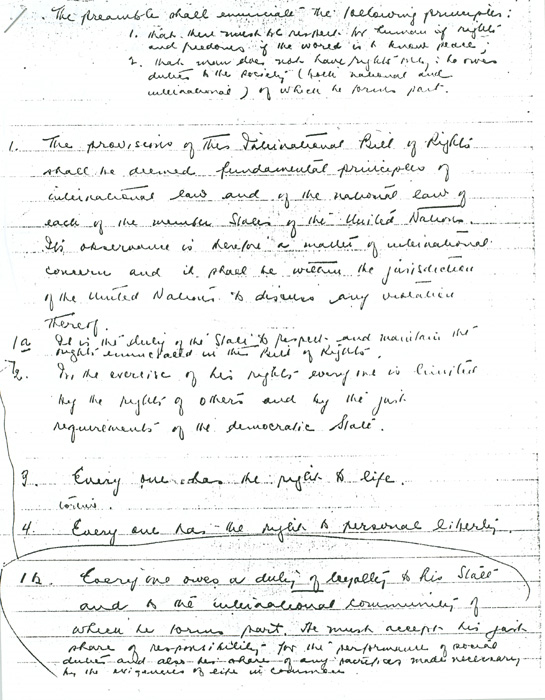 The preamble shall enunciate the following principles:
1. that there must be respect for human rights
and freedoms if the world is to know peace;
2. that man does not have rights only; he owes
duties to the society (both national and
international) of which he forms part.
1. The provisions of this International Bill of Rights
shall be deemed fundamental principles of
international law and of the national law of
each of the member States of the United Nations.
Its observance is therefore a matter of international
concern and it shall be within the jurisdiction
of the United Nations to discuss any violation
thereof.
1a It is the duty of the State to respect and maintain the
rights enunciated in the Bill of Rights.
2. In the exercise of his rights every one is limited
by the rights of others and by the just
requirements of the democratic State.
3. Every one has the right to life.
4. Every one has the right to personal liberty.
1b. Every one owes a duty of loyalty to his State
and to the international community of
which he forms part. He must accept his just
share of responsibility for the performance of social
duties and also his share of any sacrifices made necessary
by the exigencies of life in common